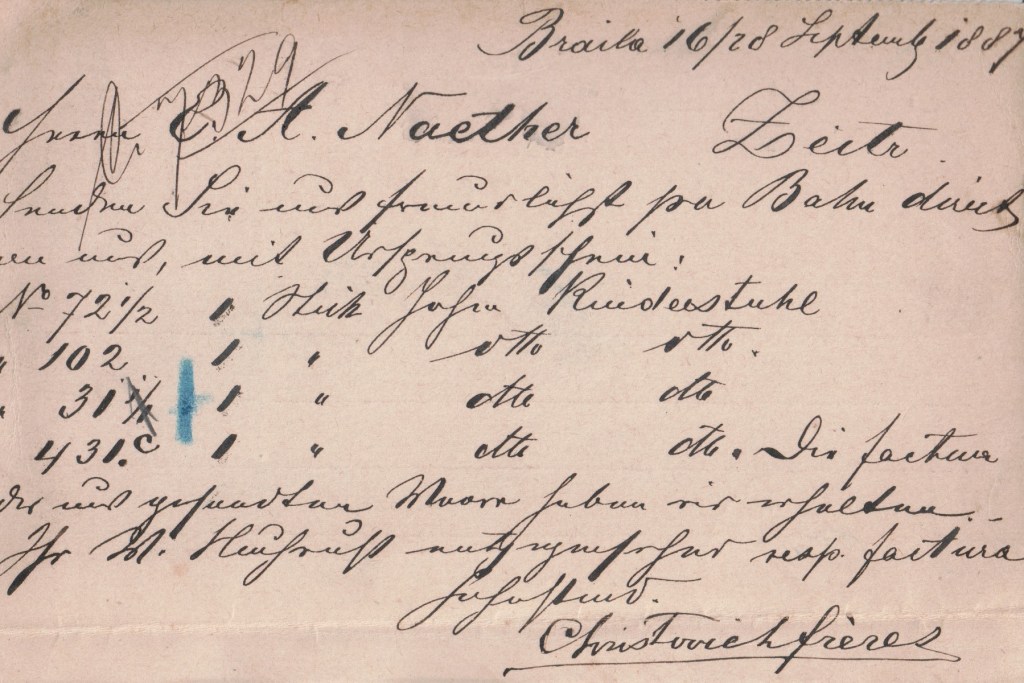 Braila 16/28 Septemb 1887
7329
Herrn E. A. Naether Zeitz.
Senden Sie uns freundlichst per Bahn direct
an uns, mit Ursprungsschein:
No 72 1/2 1 Stück hohe Kinderstühle
" 102 1 " dtto dtto.
" 31 1 " dtto dto
431.c 1 " dtto dto. Die factura
der uns gesandten Waare haben wir erhalten.
Ihr W. entgegensehend resp. factura
Hochachtend.
Christovich frères